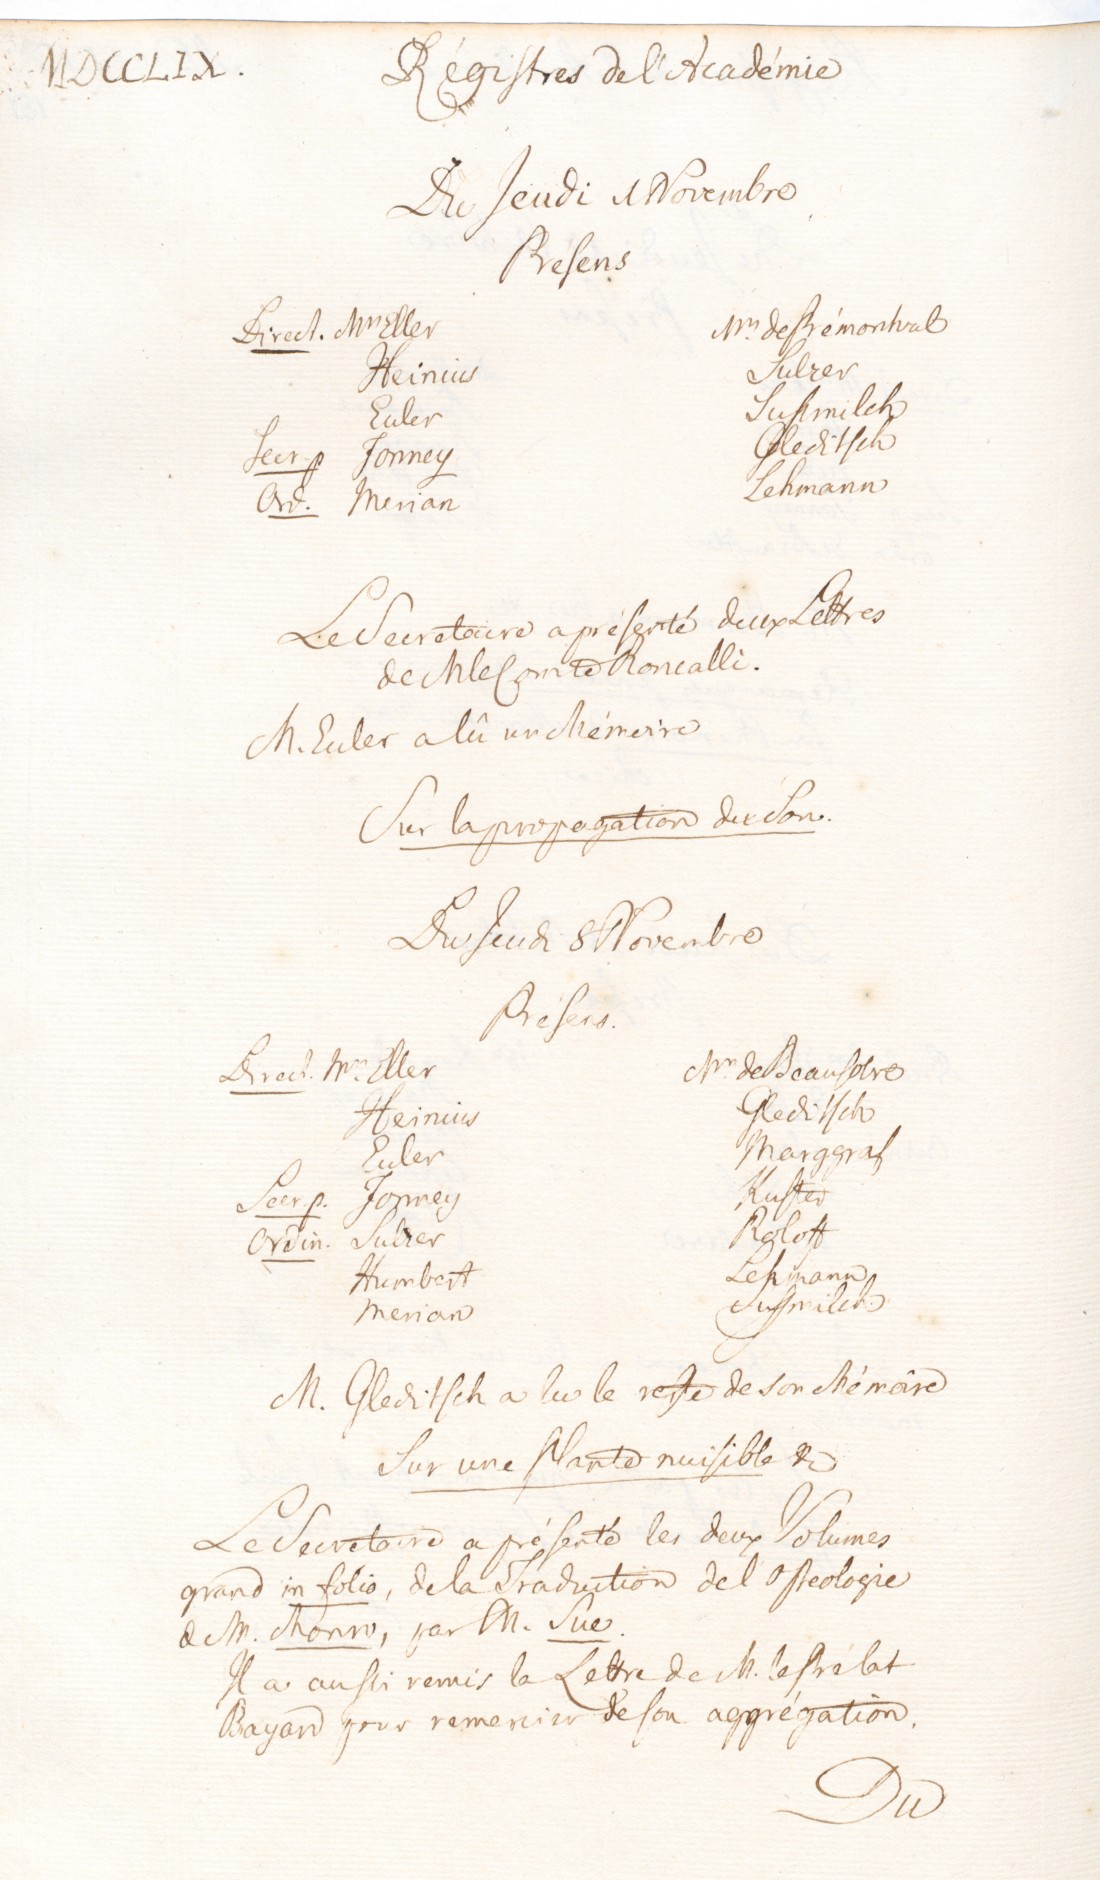 MDCCLIX. Régistres de l'Académie
Du Jeudi 1 Novembre
Présens
Direct. Mrs Eller Mrs de Prémontval
Heinius Sulzer
Euler Sussmilch
Secr. p Formey Gleditsch
Ord. Merian Lehmann
Le Secretaire a présenté deux Lettres
de M le Comte Roncalli.
M. Euler a lû un Mémoire
Sur la propagation du Son.
Du Jeudi 8 Novembre
Présens.
Direct. Mrs Eller Mrs de Beausobre
Heinius Gleditsch
Euler Marggraf
Secr. p. Formey Kuster
Ordin. Sulzer Roloff
Humbert Lehmann
Merian Sussmilch
M. Gleditsch a lu le reste de son Mémoire
Sur une Plante nuisible &c
Le Secretaire a présenté les deux Volumes
grand in folio, de la Traduction de l'Osteologie
de M. Monro, par M. Sue.
Il a aussi remis la Lettre de M. le Prélat
Bayard pour remercier de son aggrégation.
Du